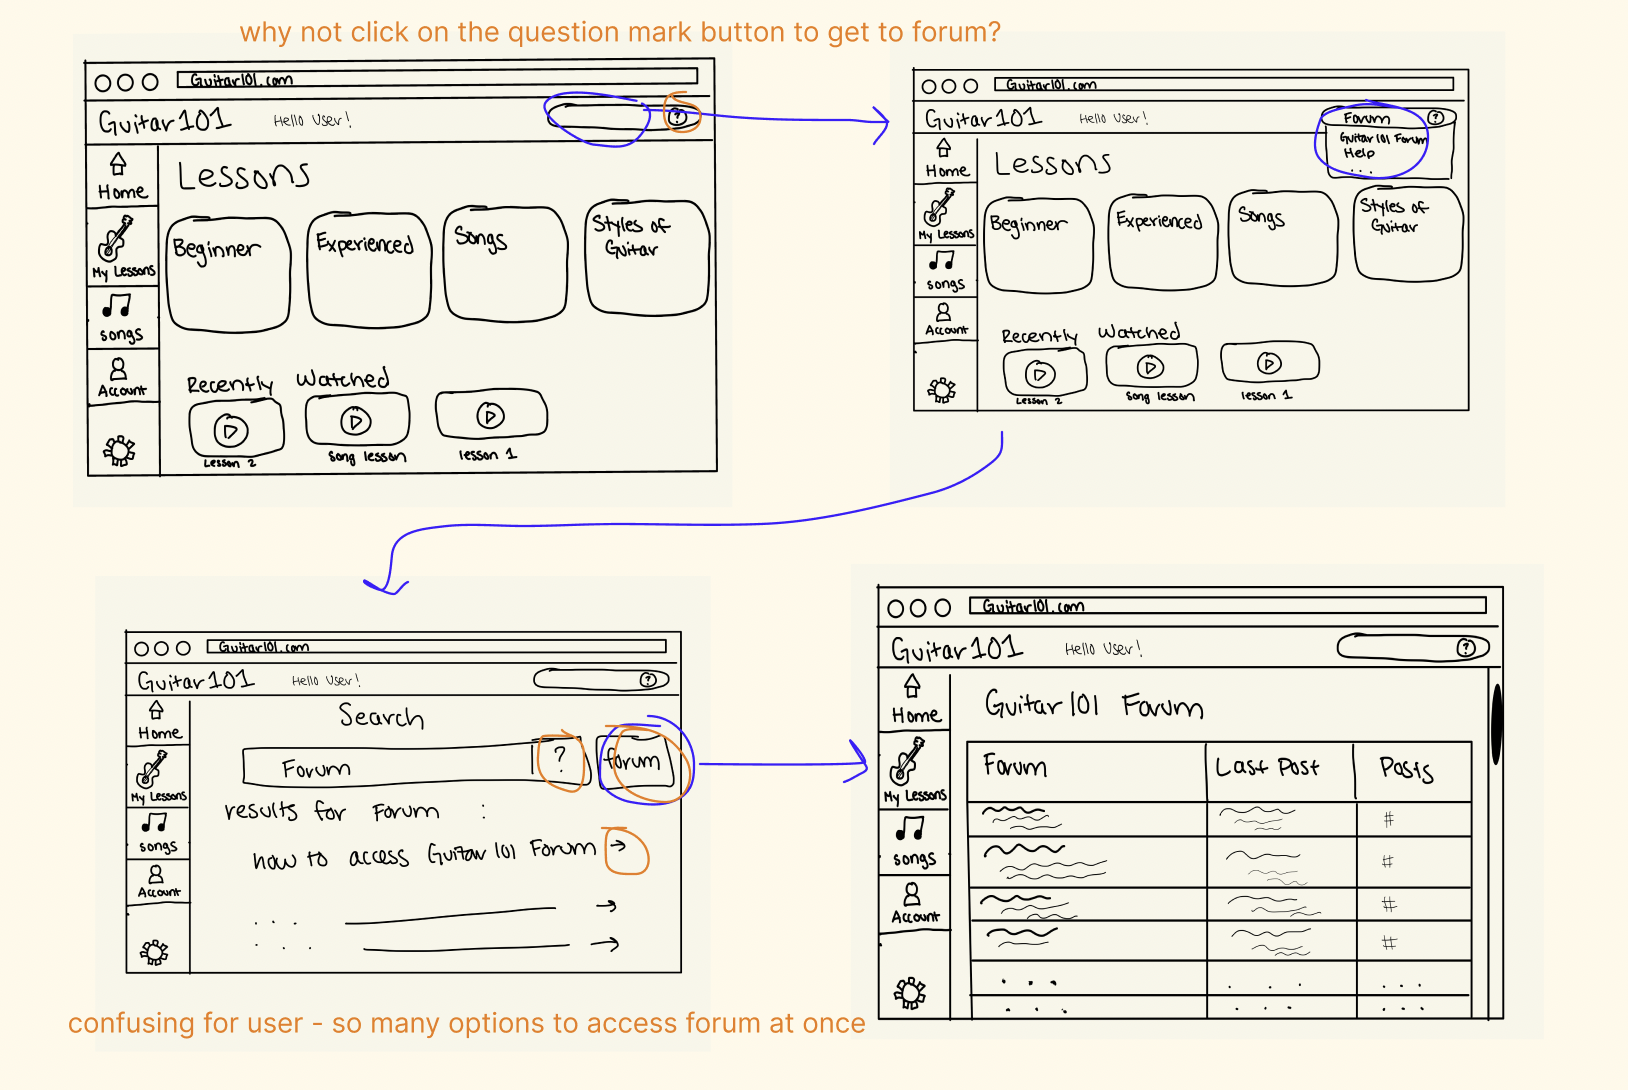 why not click on the question mark button to get to forum?
Guitar101.com
Guitar101 Hello User! ?
Home
My Lessons
songs
Account
Lessons
Beginner
Experienced
Songs
Styles of
Guitar
Recently Watched
Lesson 2
Song lesson
lesson 1
Guitar101.com
Guitar101 Hello User! Forum ?
Guitar101 Forum
Help
...
Home
My Lessons
songs
Account
Lessons
Beginner
Experienced
Songs
Styles of
Guitar
Recently Watched
Lesson 2
Song lesson
lesson 1
Guitar101.com
Guitar101 Hello User! ?
Home
My Lessons
songs
Account
Search
Forum ? forum
results for Forum :
how to access Guitar101 Forum →
... →
... →
confusing for user - so many options to access forum at once
Guitar101.com
Guitar101 Hello User! ?
Home
My Lessons
songs
Account
Guitar101 Forum
Forum Last Post Posts
#
#
#
#
... ... ...
... ... ...